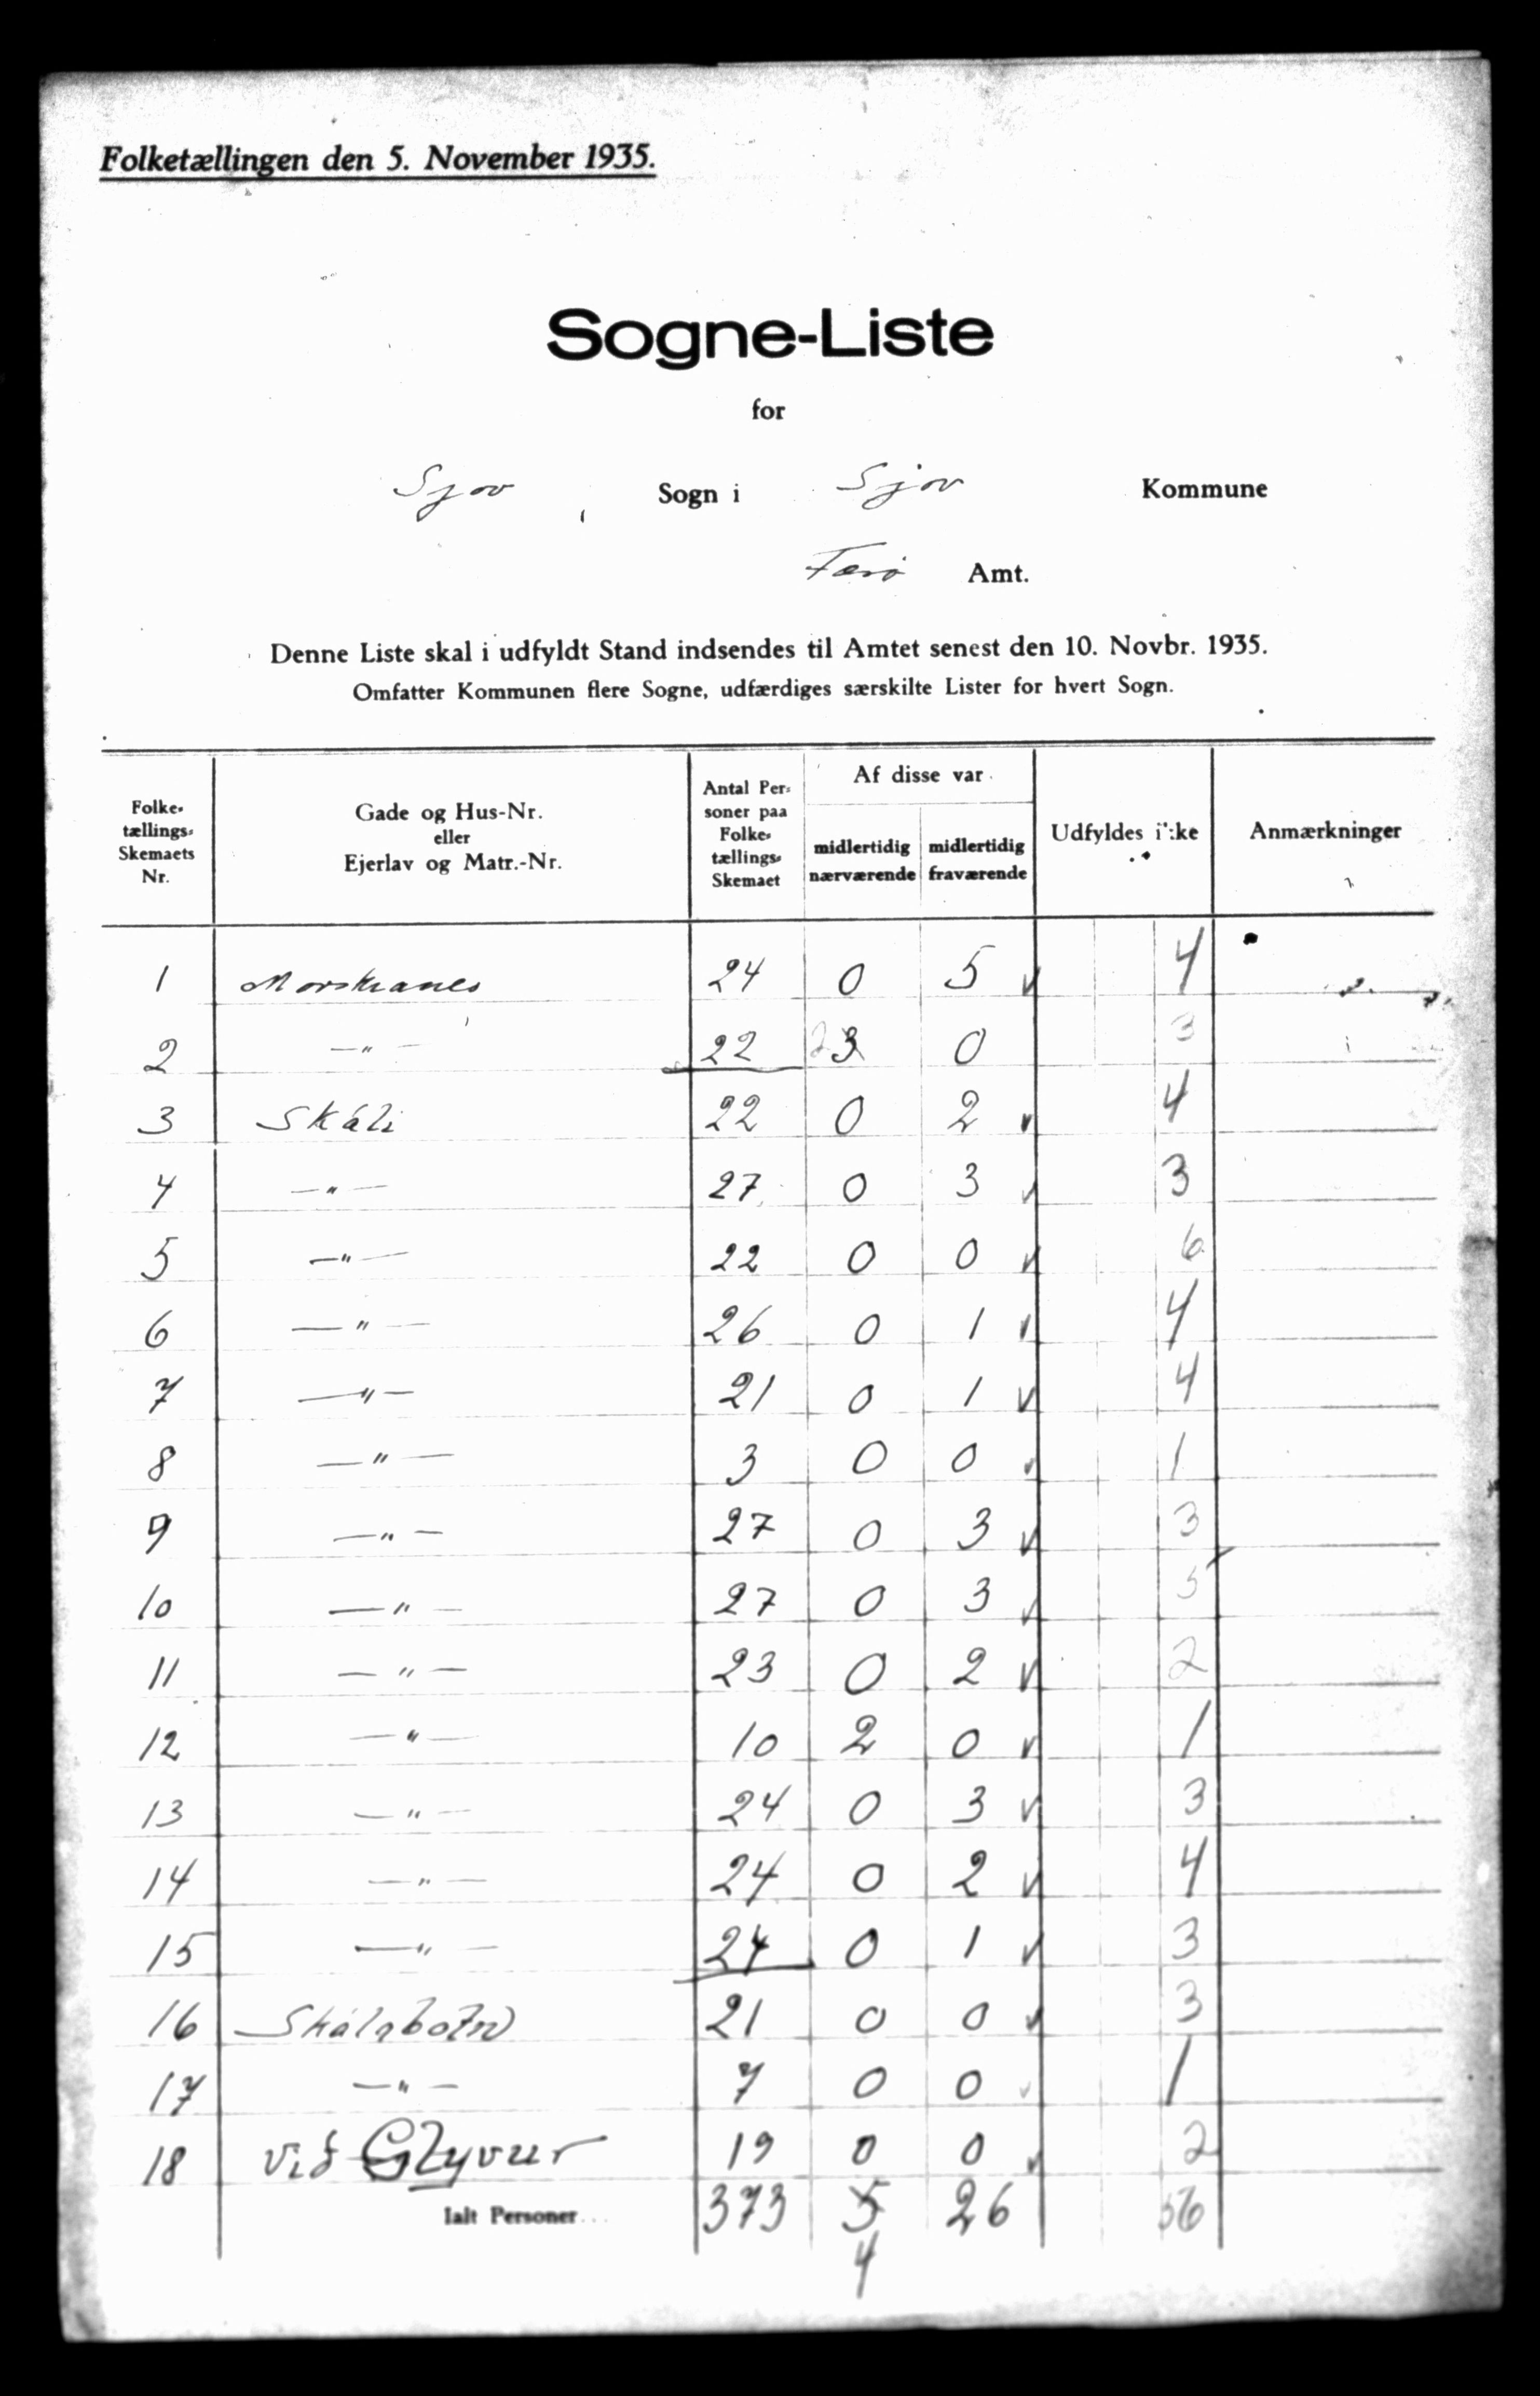 Folketællingen den 5. November 1935.
Sogne-Liste
for
Sjov Sogn i Sjov Kommune
Færø Amt.
Denne Liste skal i udfyldt Stand indsendes til Amtet senest den 10. Novbr. 1935.
Omfatter Kommunen flere Sogne, udfærdiges særskilte Lister for hvert Sogn.
Folke-tællings-Skemaets Nr. Gade og Hus-Nr. eller Ejerlav og Matr.-Nr. Antal Per-soner paa Folke-tællings-Skemaet Af disse var midlertidig nærværende midlertidig fraværende Udfyldes ikke Anmærkninger
1 Morskranes 24 0 5 v 4
2 —"— 22 2 3 0 3
3 Skáli 22 0 2 v 4
4 —"— 27 0 3 v 3
5 —"— 22 0 0 v 6
6 —"— 26 0 1 v 4
7 —"— 21 0 1 v 4
8 —"— 3 0 0 v 1
9 —"— 27 0 3 v 3
10 —"— 27 0 3 v 5
11 —"— 23 0 2 v 2
12 —"— 10 2 0 v 1
13 —"— 24 0 3 v 3
14 —"— 24 0 2 v 4
15 —"— 24 0 1 v 3
16 Skálabotn 21 0 0 v 3
17 —"— 7 0 0 v 1
18 við Glyvur 19 0 0 v 2
Ialt Personer... 373 5 26 56
4